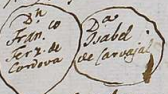 Dn
Fran.co
Ferz. de
Cordova
Da
Isabel
de Carvajal